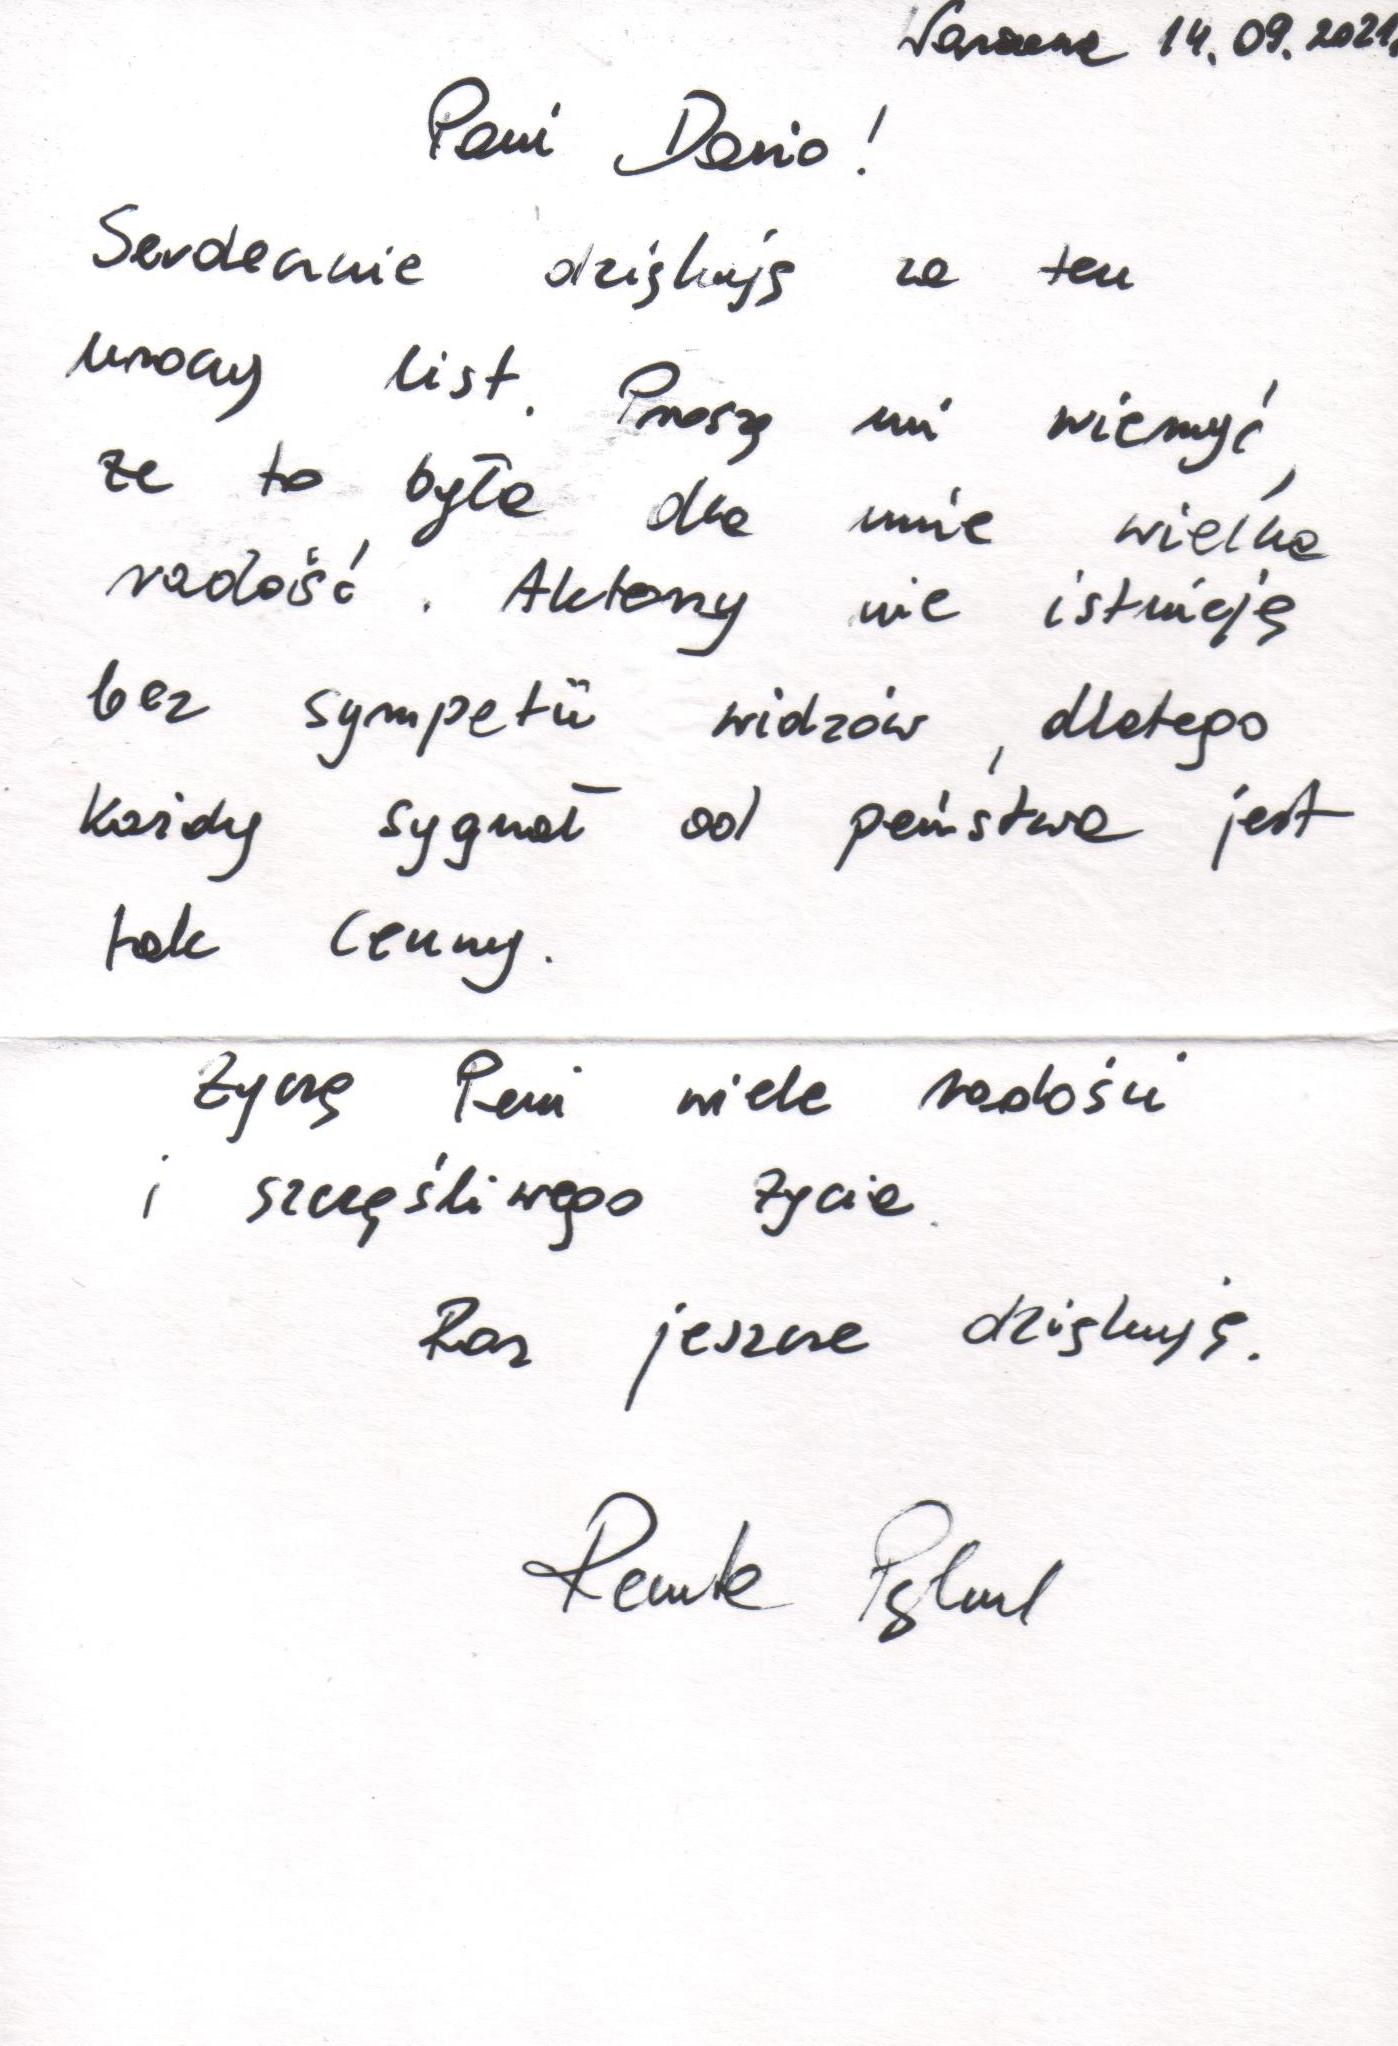 Warszawa 14.09.2021.
Pani Dario!
Serdecznie dziękuję za ten
uroczy list. Proszę mi wierzyć,
że to była dla mnie wielka
radość. Aktorzy nie istnieją
bez sympatii widzów, dlatego
każdy sygnał od państwa jest
tak cenny.
Życzę Pani wiele radości
i szczęśliwego życia.
Raz jeszcze dziękuję.